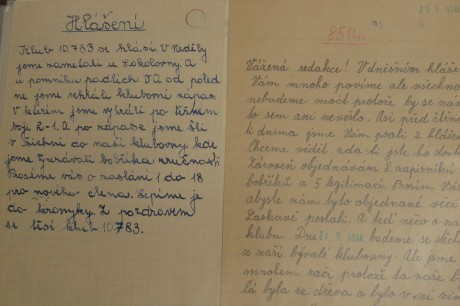 Hlášení
Klub 10.783 se hlásí. V Neděly
jsme zametali u Sokolovny. A
u pomníku padlích VA od poled
ne jsme sehráli klubovní zápas
v kterím jsme vyhráli po těžkém
boji 2-1. A po zápase jsme šli
všichni do naší klubovny kde
jsme zdolávali bobříka mrštnosti
Prosíme vás o zaslání 1 do 18
pro nového člena. Lepíme je
do kroniky. Z pozdravem
se těší klub 10783.
8514.
Vážená redakce! V dnešním hláše
Vám mnoho povíme ale všechno
nebudeme močit protože by se náš
to sem ani nevešlo. Asi před čtrná
ti dnima jsme Vám psali 2 hláše
Chceme vědět zda-li jste ho dost
Zároveň objednávám 8 zápisníků
bobříků a 5 legitimací. Prosím Vás
abyste nám tyto objednané věci
Laskavě poslali. A teď něco o na
klubu. Dne 1946 budeme se stěho
z naší bývalé klubovny. Ale jsme
mnohem rači protože ta naše b
lá byla ze dřeva a bylo v ní zim